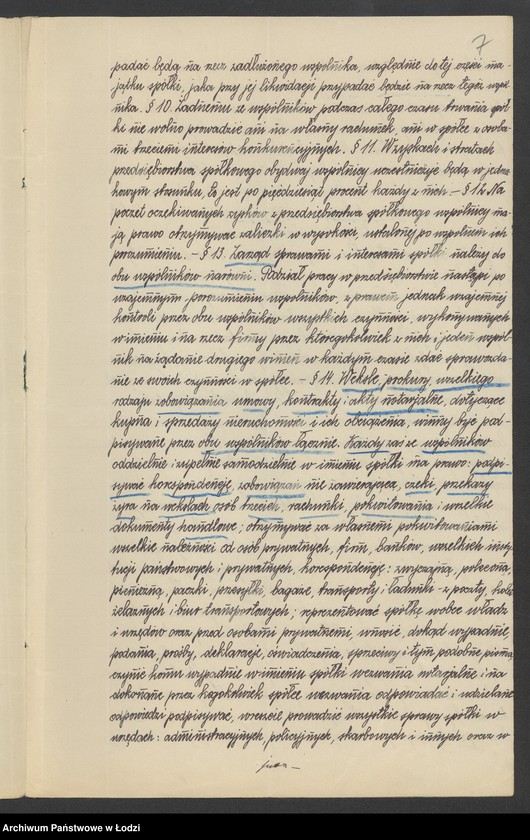 7
padać będą na rzecz zadłużonego wspólnika, względnie do tej części ma-
jątku spółki, jaka przy jej likwidacji przypadać będzie na rzecz tegoż wspól-
nika. § 10. Żadnemu ze wspólników podczas całego czasu trwania spół-
ki nie wolno prowadzić ani na własny rachunek, ani w spółce z osoba-
mi trzeciemi interesów konkurencyjnych. § 11. W zyskach i stratach
przedsiębiorstwa spółkowego obydwaj wspólnicy uczestniczyć będą w jedna-
kowym stosunku, to jest po pięćdziesiąt procent każdy z nich. — § 12. Na
poczet oczekiwanych zysków z przedsiębiorstwa spółkowego wspólnicy ma-
ją prawo otrzymywać zaliczki w wysokości, ustalonej po wspólnem ich
porozumieniu. — § 13. Zarząd sprawami i interesami spółki należy do
obu wspólników narówni. Podział pracy w przedsiębiorstwie nastąpi po
wzajemnym porozumieniu wspólników, z prawem jednak wzajemnej
kontroli przez obu wspólników wszystkich czynności, wykonywanych
w imieniu i na rzecz firmy przez któregokolwiek z nich i jeden wspól-
nik na żądanie drugiego winien w każdym czasie zdać sprawozda-
nie ze swoich czynności w spółce. — § 14. Weksle, prokury, wszelkiego
rodzaju zobowiązania umowy, kontrakty i akty notarjalne, dotyczące
kupna i sprzedaży nieruchomości i ich obciążenia, winny być pod-
pisywane przez obu wspólników łącznie. Każdy zaś ze wspólników
oddzielnie i zupełnie samodzielnie w imieniu spółki ma prawo: podpi-
sywać korespondencję, zobowiązań nie zawierającą, czeki, przekazy
żyra na wekslach osób trzecich, rachunki, pokwitowania i wszelkie
dokumenty handlowe; otrzymywać za własnemi pokwitowaniami
wszelkie należności od osób prywatnych, firm, banków, wszelkich insty-
tucji państwowych i prywatnych, korespondencję: zwyczajną, poleconą,
pieniężną, paczki, przesyłki, bagaże, transporty i ładunki — z poczty, kolei
żelaznych i biur transportowych; reprezentować spółkę wobec władz
i urzędów oraz przed osobami prywatnemi, wnosić, dokąd wypadnie,
podania, prośby, deklaracje, oświadczenia, sprzeciwy i tym podobne pisma,
czynić komu wypadnie w imieniu spółki wezwania notarjalne i na
dokonane przez kogokolwiek spółce wezwania odpowiadać i udzielane
odpowiedzi podpisywać, wreszcie prowadzić wszystkie sprawy spółki w
urzędach: administracyjnych, policyjnych, skarbowych i innych oraz w
Archiwum Państwowe w Łodzi